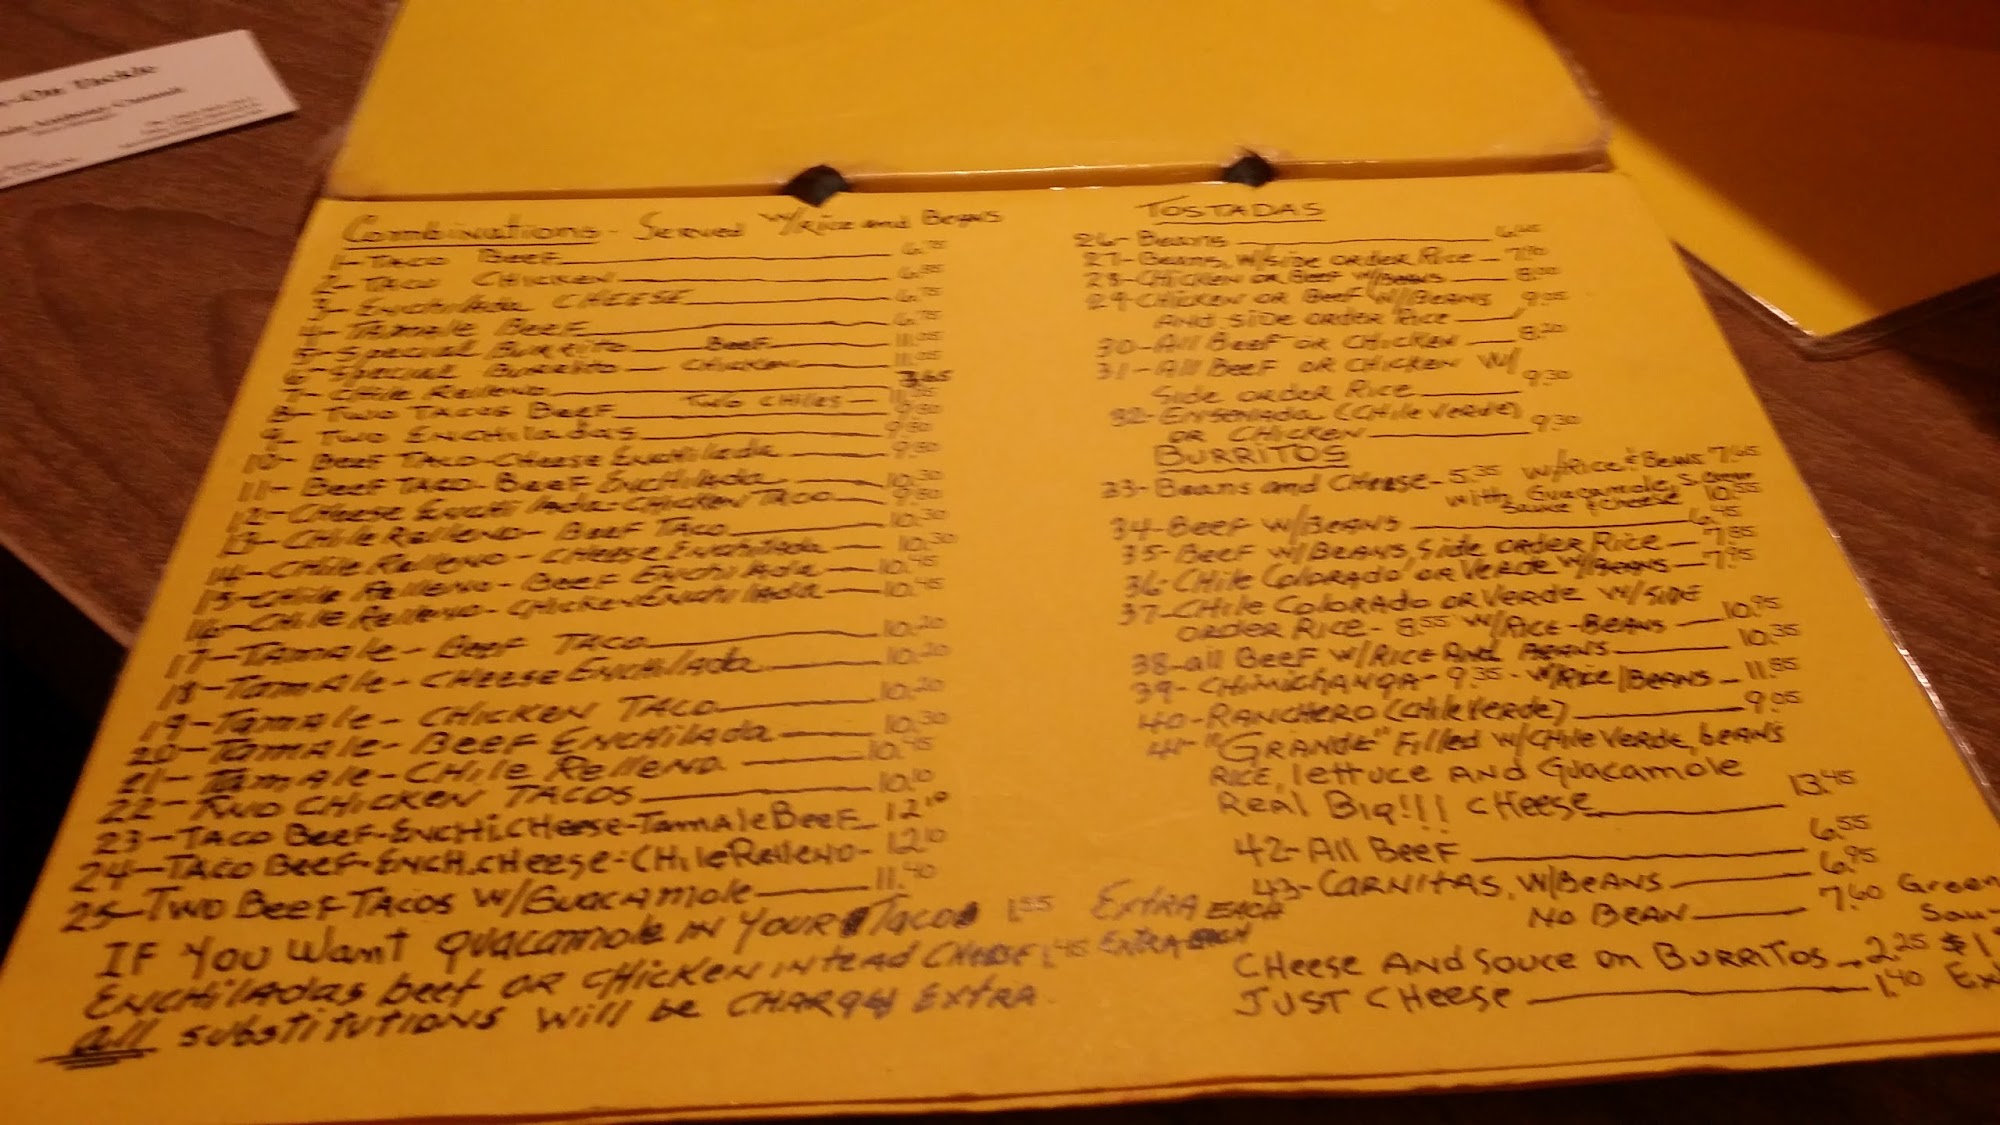 Combinations - Served w/Rice and Beans
1- Taco Beef 6.75
2- Taco Chicken 6.95
3- Enchilada Cheese 6.75
4- Tamale Beef 6.75
5- Special Burrito Beef 11.05
6- Special Burrito Chicken 11.05
7- Chile Relleno
8- Two Tacos Beef Two Chiles
9- Two Enchiladas
10- Beef Taco-Cheese Enchilada
11- Beef Taco-Beef Enchilada 10.30
12- Cheese Enchilada-Chicken Taco
13- Chile Relleno-Beef Taco 10.30
14- Chile Relleno-Cheese Enchilada 10.30
15- Chile Relleno-Beef Enchilada 10.45
16- Chile Relleno-Chicken Enchilada 10.45
17- Tamale-Beef Taco 10.20
18- Tamale-Cheese Enchilada 10.20
19- Tamale-Chicken Taco 10.20
20- Tamale-Beef Enchilada 10.30
21- Tamale-Chile Relleno 10.45
22- Two Chicken Tacos 10.10
23- Taco Beef-Enchi.Cheese-Tamale Beef 12.10
24- Taco Beef-Ench.cheese-Chile Relleno 12.10
25- Two Beef Tacos w/Guacamole 11.40
If You Want guacamole in your Taco 1.55 Extra each
Enchiladas beef or chicken intead cheese 1.45 extra each
all substitutions will be charge extra
Tostadas
26- Beans 6.45
27- Beans, w/side order Rice
28- Chicken or Beef w/Beans 8.00
29- Chicken or Beef w/Beans 9.05
and side order Rice
30- All Beef or Chicken 8.20
31- All Beef or Chicken w/
side order Rice 9.30
32- Ensenada (Chile Verde)
or Chicken 9.30
Burritos
33- Beans and Cheese - 5.35 w/Rice & Beans 7.65
with Guacamole, S. Cream
Sauce & Cheese 10.55
34- Beef w/Beans 6.45
35- Beef w/Beans, side order Rice 7.85
36- Chile Colorado or Verde w/Beans 7.95
37- Chile Colorado or Verde w/side
order Rice - 8.55 w/Rice-Beans 10.95
38- all Beef w/Rice and Beans 10.35
39- Chimichanga - 9.35 - w/Rice/Beans 11.85
40- Ranchero (Chile Verde) 9.05
41- "Grande" Filled w/Chile Verde, beans
Rice, lettuce and Guacamole
Real Big!!! Cheese 13.45
42- All Beef 6.55
43- Carnitas, w/Beans 6.95
No Bean 7.60 Green
Cheese and Souce on Burritos 2.25
Just Cheese 1.40